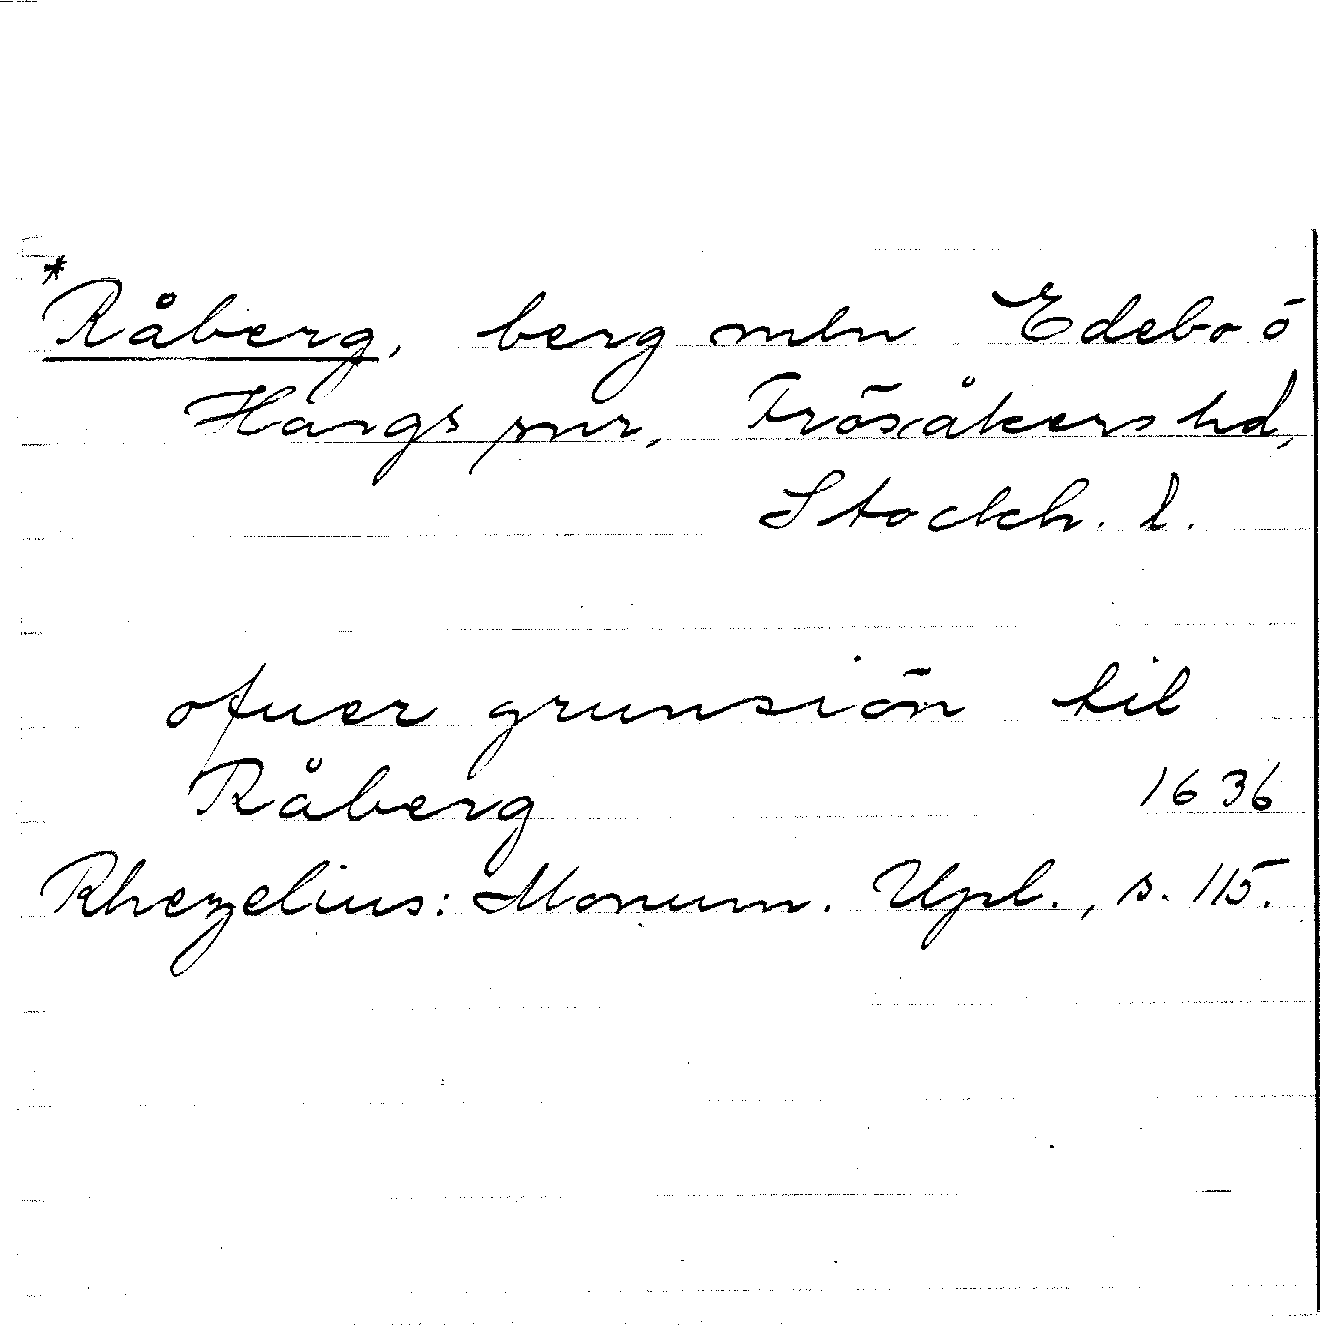 *Råberg, berg mln Edebo ō
Hargs snr, Frösåkers hd,
Stockh. l.
ofuer grunsiön til
Råberg 1636
Rhezelius: Monum. Upl., s. 115.